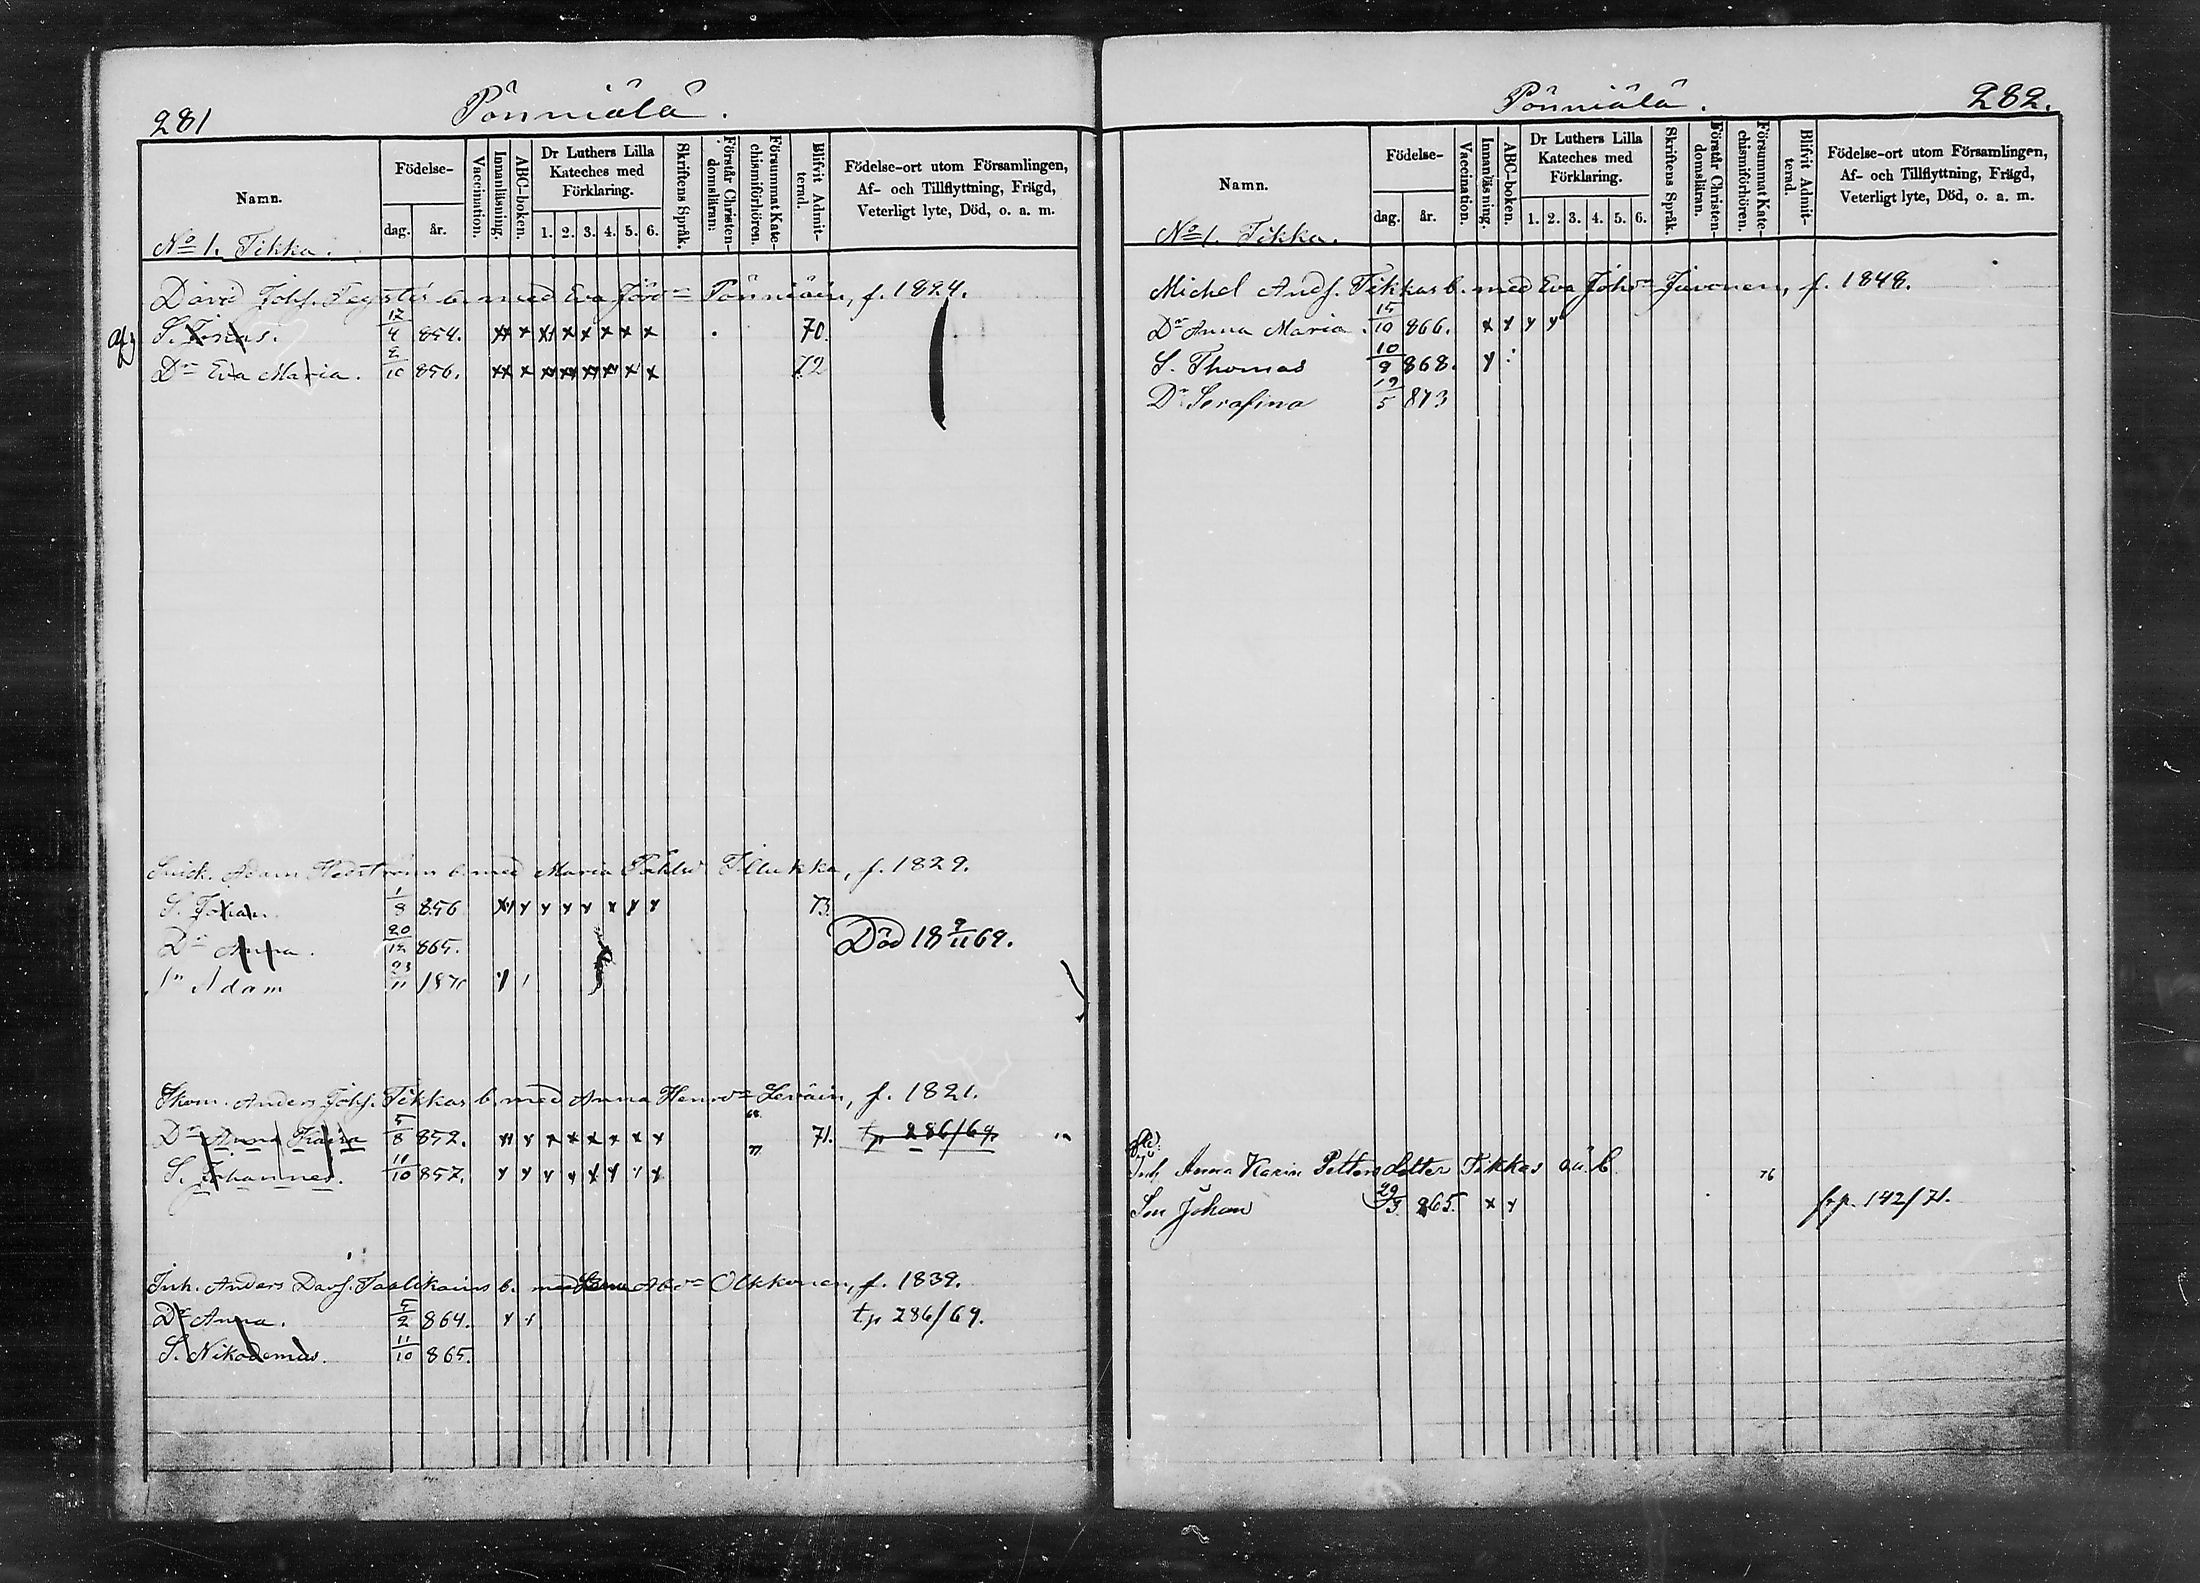 281 Pönniälä.
Namn. Födelse- dag. år. Vaccination. Innanläsning. ABC-boken. Dr Luthers Lilla Kateches med Förklaring. 1. 2. 3. 4. 5. 6. Skriftens Språk. Förstår Christen-domsläran: Försummat Kate-chismiförhören. Blifvit Admit-terad. Födelse-ort utom Församlingen, Af- och Tillflyttning, Frägd, Veterligt lyte, Död, o. a. m.
No 1. Tikka.
David Johs. b. med Eva Pönniäin, f. 1824.
S. 17/4 854. 70.
Dr Eva Maria. 2/10 856. 72
Adam Hedström b. med Maria Illukka, f. 1829.
S. Johan. 1/8 856 73.
Dr Anna. 20/12 865. Död 18 9/11 69.
Sn Adam 23/11 1870
Anders Johs. Tikkas b. med Anna Henrdr Leväin, f. 1821.
Dr Anna 5/8 852. 71. tp 286/69.
S. Johannes. 11/10 857.
Inh. Anders Davs. b. med Olkkonen, f. 1839.
Dr Anna. 5/2 864. tp 286/69.
S. Nikodemus. 11/10 865.
Pönniälä. 282.
Namn. Födelse- dag. år. Vaccination. Innanläsning. ABC-boken. Dr Luthers Lilla Kateches med Förklaring. 1. 2. 3. 4. 5. 6. Skriftens Språk. Förstår Christen-domsläran. Försummat Kate-chismiförhören. Blifvit Admit-terad. Födelse-ort utom Församlingen, Af- och Tillflyttning, Frägd, Veterligt lyte, Död, o. a. m.
No 1. Tikka.
Michel Ands. Tikkas b. med Eva Johdr Javonen, f. 1848.
Dr Anna Maria. 15/10 866.
S. Thomas 10/9 868.
Dr Serafina 19/5 873
Inh. Anna Karin Petters dotter Tikkas o.ä. b. 76
Son Johan 29/3 865. frp. 142/71.